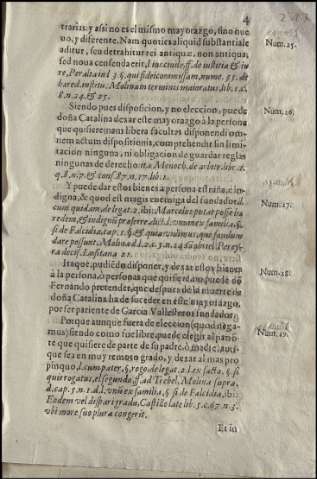 4
trario: y assi no es el mismo mayorazgo, sino nue
vo, y diferente. Nam quoties aliquid substantiale
additur, seu detrahitur rei antiquæ, non antiqua,
sed noua censenda est, l. inter de iustitia & iu
re, Peralta in l. 3. §. qui fideicommissam, nume. 55. de
hæred. instit. Molina in terminis maioratus lib. 1. c.
8. n. 24. & 25.
Num. 25.
Siendo pues disposicion, y no eleccion, puede
doña Catalina dexar este mayorazgo à la persona
que quisiere: nam libera facultas disponendi om-
nem actum dispositionis, comprehendit sin limi-
tacion ninguna, ni obligacion de guardar reglas
ningunas de derecho: ita Menoch. de arbitr. lib. 1.
q. 8. n. 7. & cons. 87. n. 17. lib. 1.
Num. 26.
Y puede dar estos bienes a persona estraña, è in-
digna, & quod est magis enemiga del fundador: l.
cum quidam, de legat. 2. ibi: Marcellus putat posse hæ
redem, & indignis præferre, did. l. vnum ex familia, §.
si de Falcidia, cap. 1. §. & quia vidimus, qui feudum
dare possunt. Molina d. l. 2. c. 5. n. 24. Gabriel Perey-
ra decis. Lusitana 21.
Num. 27.
Itaque, pudiẽdo disponer, y dexar estos bienes
à la persona, ò personas que quisiere, aun puede dõ
Fernando pretender, que despues de la muerte de
doña Catalina ha de suceder en este mayorazgo,
por ser pariente de Garcia Vallesteros fundador.
Num. 28.
Porque aunque fuera de eleccion (quod nega-
mus) siendo como fue libre, puede elegir al parien-
te que quisiere de parte de su padre, ò madre, aun-
que sea en muy remoto grado, y dexar al mas pro
pinquo, l. cum pater, §. rogo, de legat. 2. l. ex facto, §. si
quis rogatus, el segundo, ff. ad Trebel. Molina supra,
d. cap. 5. n. 1. d. l. vnũ ex familia, §. si de Falcidia, ibi:
Eodem vel dispari gradu, Castillo late lib. 5. c. 67. n. 3.
vbi more suo plura congerit.
Num. 29.